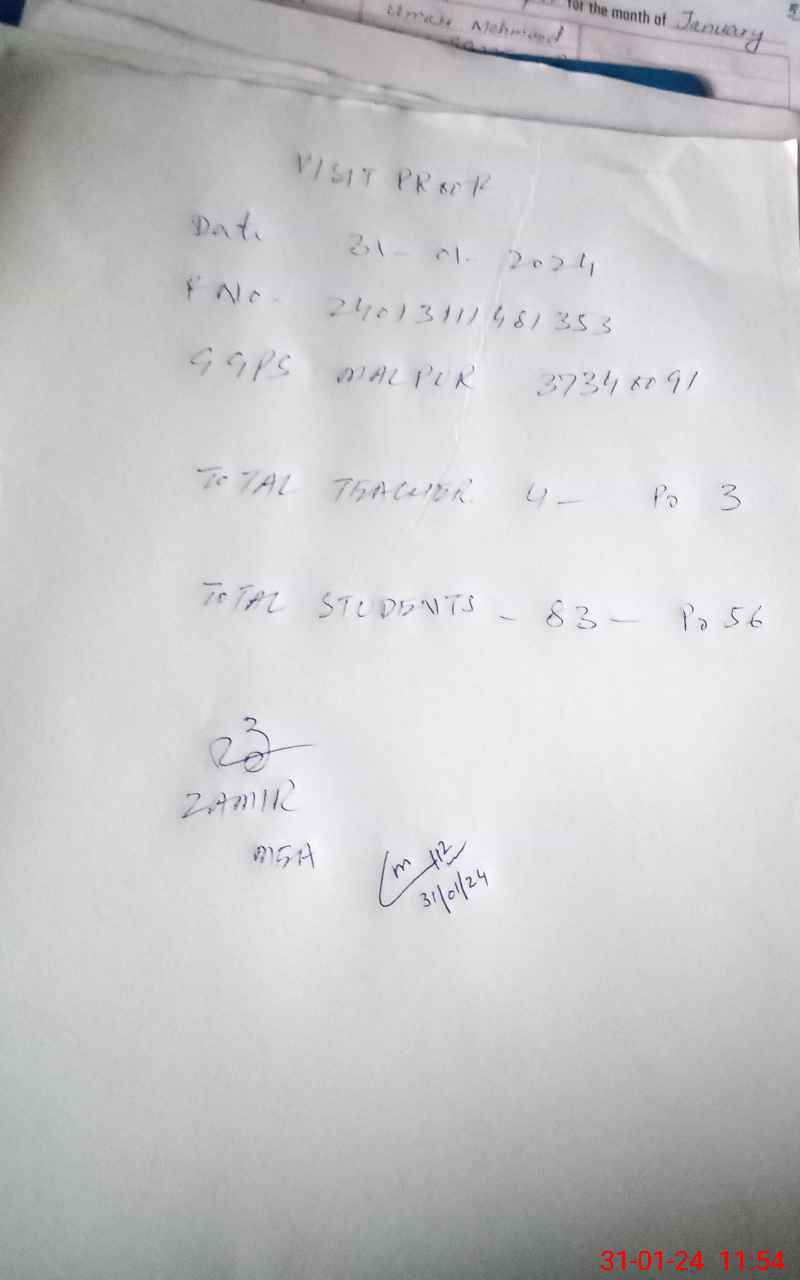 for the month of January
Mehmood
VISIT PROOF
Date 31-01-2024
F No. 24013111481353
GGPS MALPUR 37340091
TOTAL TEACHER 4 - Po 3
TOTAL STUDENTS - 83 - Po 56
ZAMIR
MEA
31/01/24
31-01-24 11:54